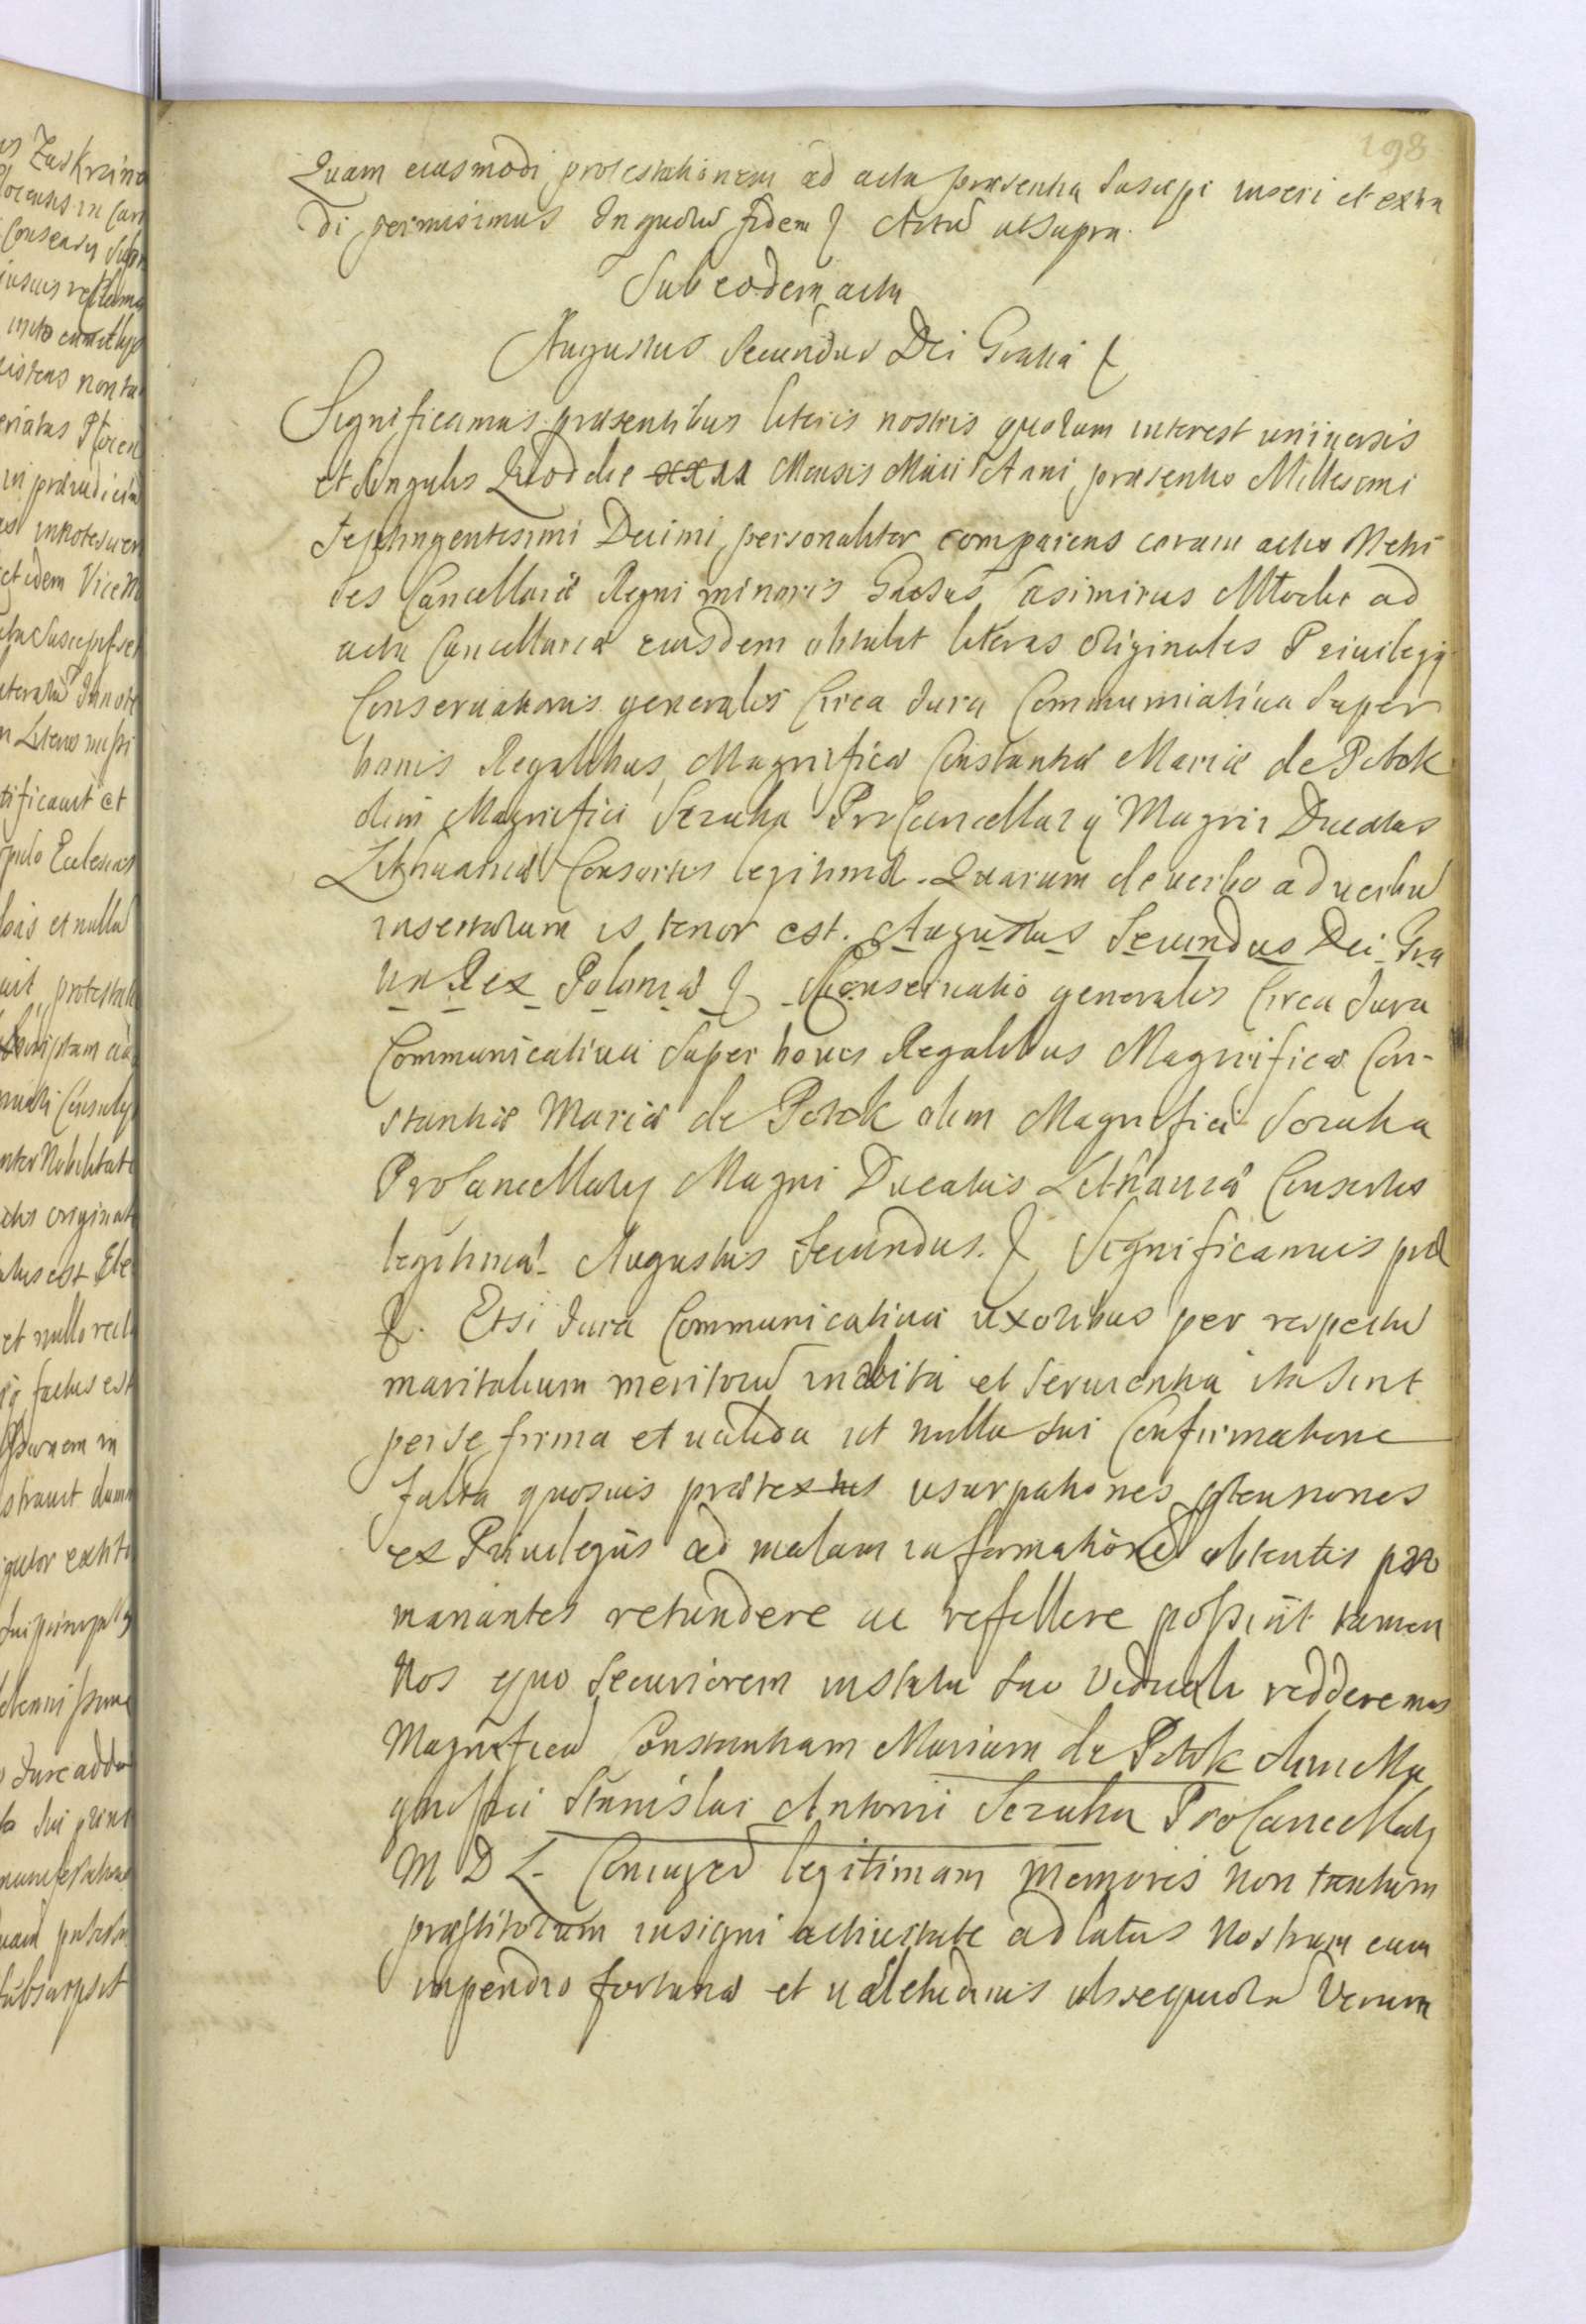 198
Quam eiusmodi protestationem ad acta præsentia suscipi inseri et extra
di permisimus In quorū fidem & Actū ut supra.
Sub eodem actu
Augustus Secundus Dei Gratiá &
Significamus præsentibus literis nostris quorum interest uniuersis
et singulis Quod die Mensis Maii Anni præsentis Millesimi
Septingentesimi Decimi personaliter comparens coram actis Metri
ces Cancellariæ Regni minoris Gnosus Casimirus ad
acta Cancellariæ eiusdem obtulit literas originales Priuilegij
Conseruationis generalis Circa Iura Communicatiua super
bonis Regalibus Magnificæ Constantiæ Mariæ de Potok
olim Magnifici Szczuka ProCancellarij Magni Ducatus
Lithuaniæ Consortis legitimæ. Quarum de uerbo ad uerbū
insertarum is tenor est. Augustus Secundus Dei Gra
tia Rex Poloniæ & Conseruatio generalis Circa Iura
Communicatiua super bonis Regalibus Magnificæ Con-
stantiæ Mariæ de Potok olim Magnifici Szczuka
ProCancellarij Magni Ducatus Lithuaniæ Consortis
legitimæ. Augustus Secundus. & Significamus præ
&. Etsi Iura Communicatiua uxoribus per respectū
maritalium meritorū indita et seruientia ita sint
per se firma et ualida ut nulla sui Confirmatione
fulta quosuis prætextus usurpationes
ex Priuilegiis ad malam informationē obtentis pro
manantes retundere ac refellere possint tamen
Nos quo securiorem in statu suo Viduali redderemus
Magnificā Constantiam Mariam de Potok olim Ma
gnifici Stanislai Antonii Szczuka ProCancellarij
M D L. Coniugē legitimam memores non tantum
præstitorum insigni actiuitate ad latus Nostrum cum
impendio fortunæ et ualetudinis obsequiorū Verum